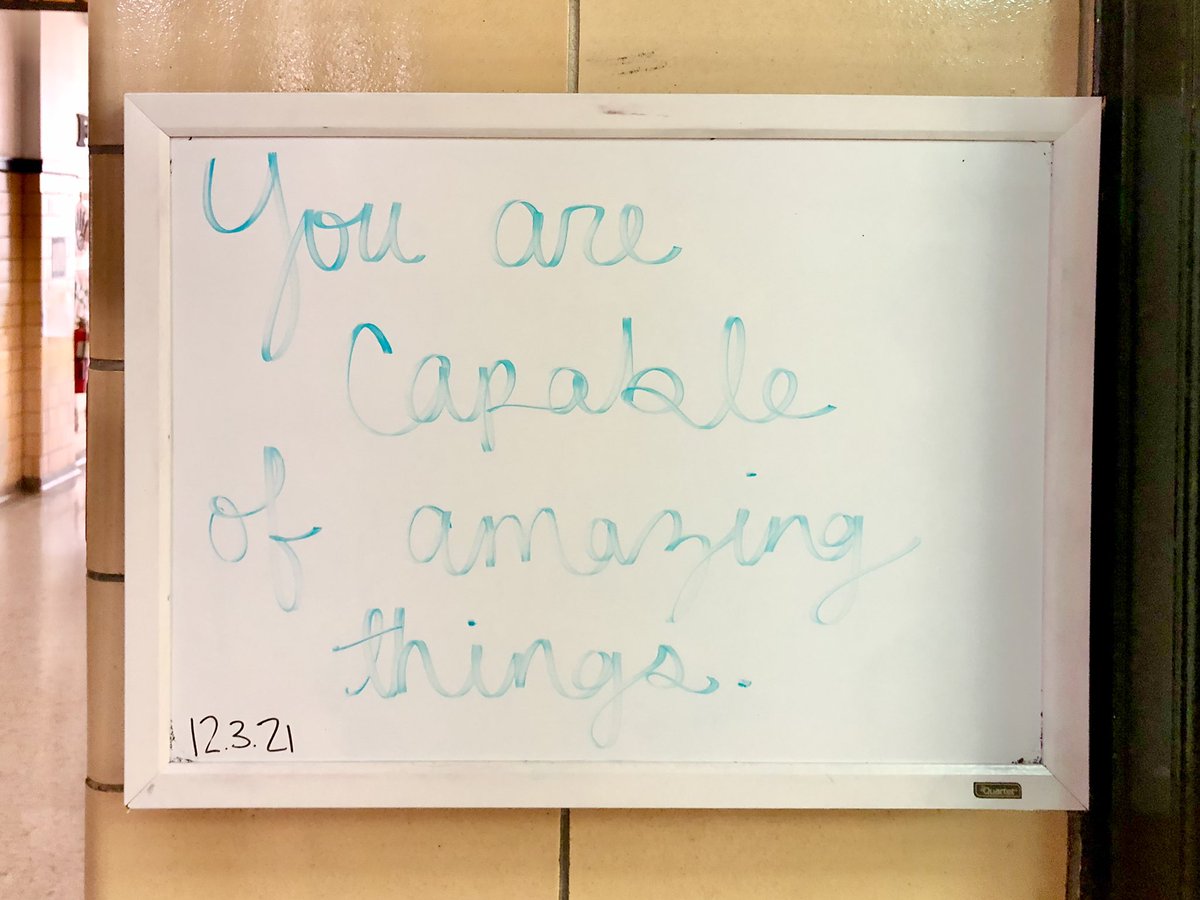 You are
Capable
of amazing
things.
12.3.21
Quartet